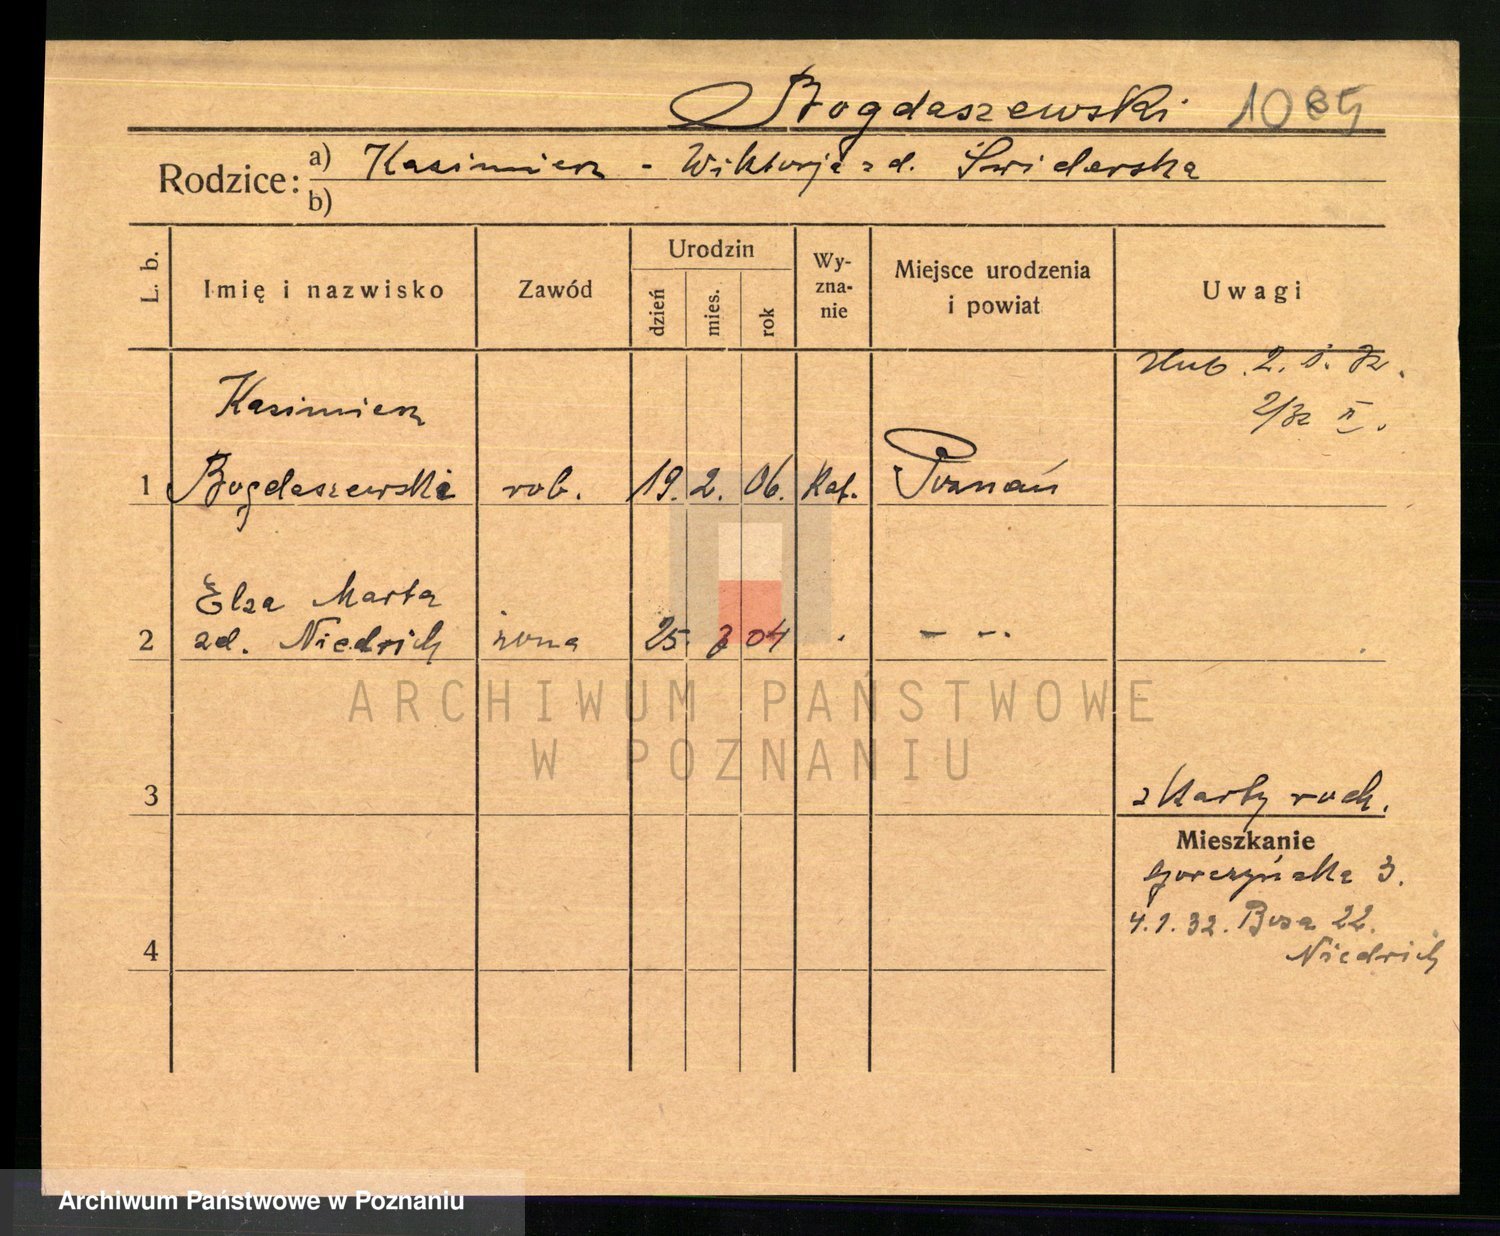 Bogdaszewski 1085
Rodzice: a) Kasimierz - Wiktorja zd. Świderska
b)
L. b. Imię i nazwisko Zawód Urodzin dzień mies. rok Wy-zna-nie Miejsce urodzenia i powiat Uwagi
ślub. 2. 1. 32.
2/32 II.
Kazimierz
1 Bogdaszewski rob. 19. 2. 06. Kat. Poznań
Elza Marta
2 zd. Niedrich żona 25. 3 04 . - -.
ARCHIWUM PAŃSTWOWE
W POZNANIU
3 z Karty roch.
Mieszkanie
Gorczyńska 3.
4.1.32. Bosa 22.
4 Niedrich
Archiwum Państwowe w Poznaniu